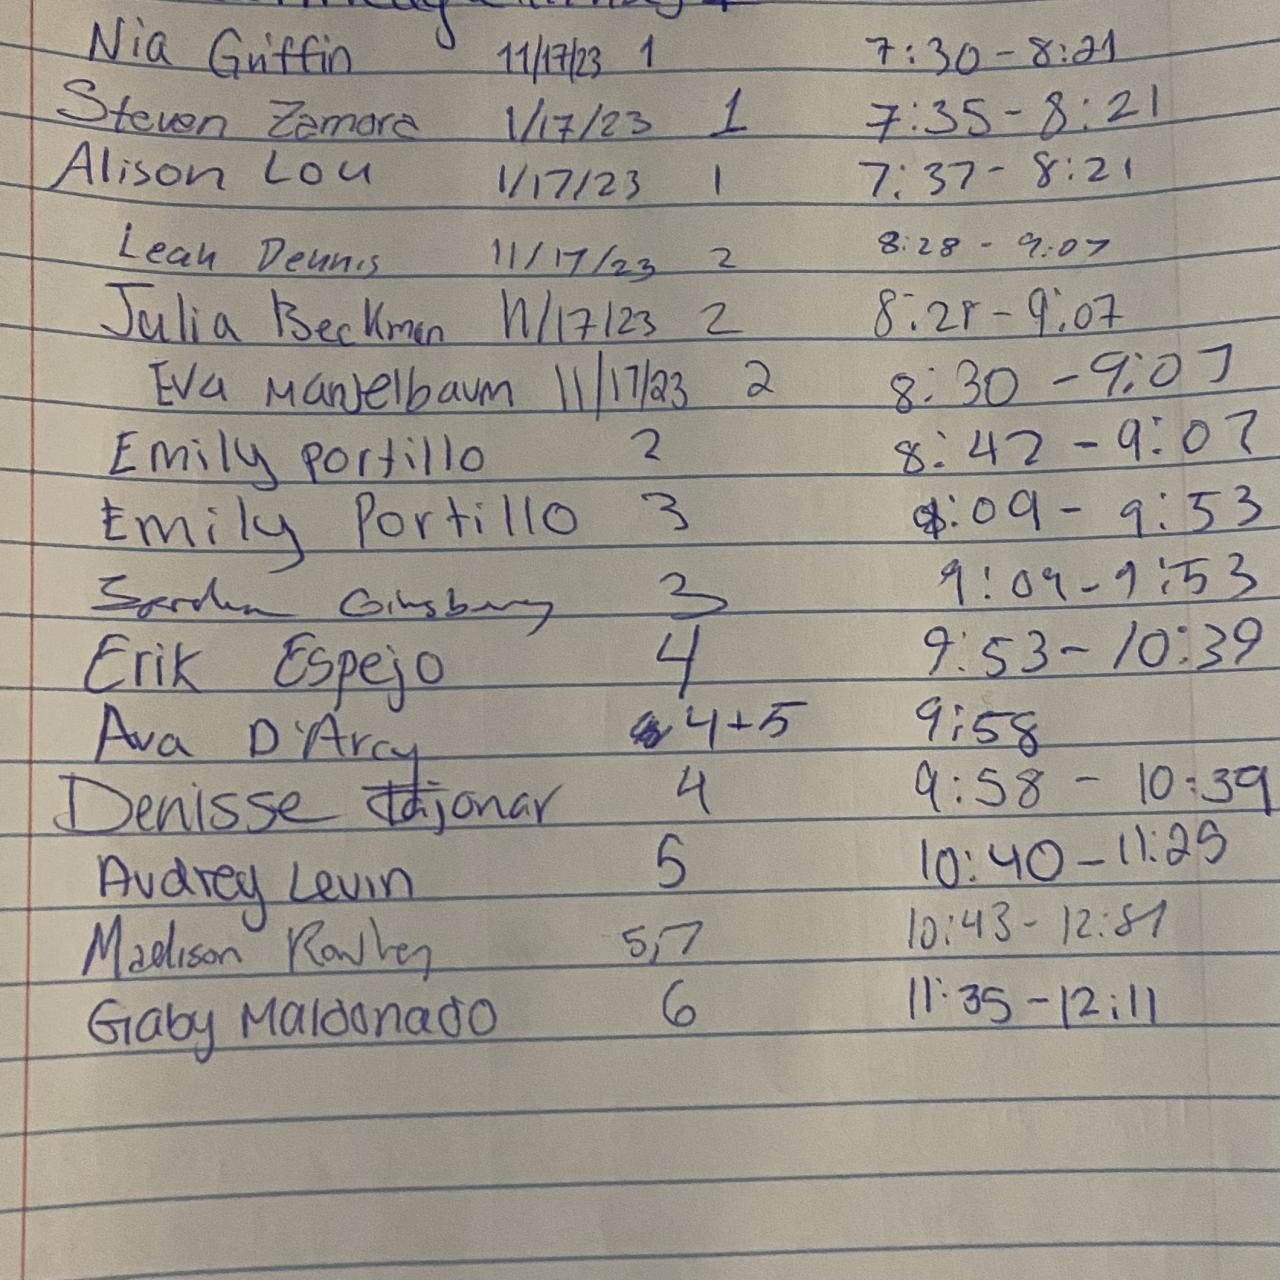 Nia Griffin 11/17/23 1 7:30-8:21
Steven Zamora 1/17/23 1 7:35-8:21
Alison Lou 1/17/23 1 7:37-8:21
Leah Dennis 11/17/23 2 8:28-9:07
Julia Beckman 11/17/23 2 8:28-9:07
Eva Mandelbaum 11/17/23 2 8:30-9:07
Emily portillo 2 8:42-9:07
Emily Portillo 3 9:09-9:53
Ginsburg 3 9:09-9:53
Erik Espejo 4 9:53-10:39
Ava D'Arcy 4+5 9:58
Denisse 4 9:58-10:39
Audrey Levin 5 10:40-11:25
Madison 5,7 10:43-
Gaby Maldonado 6 11:35-12:11